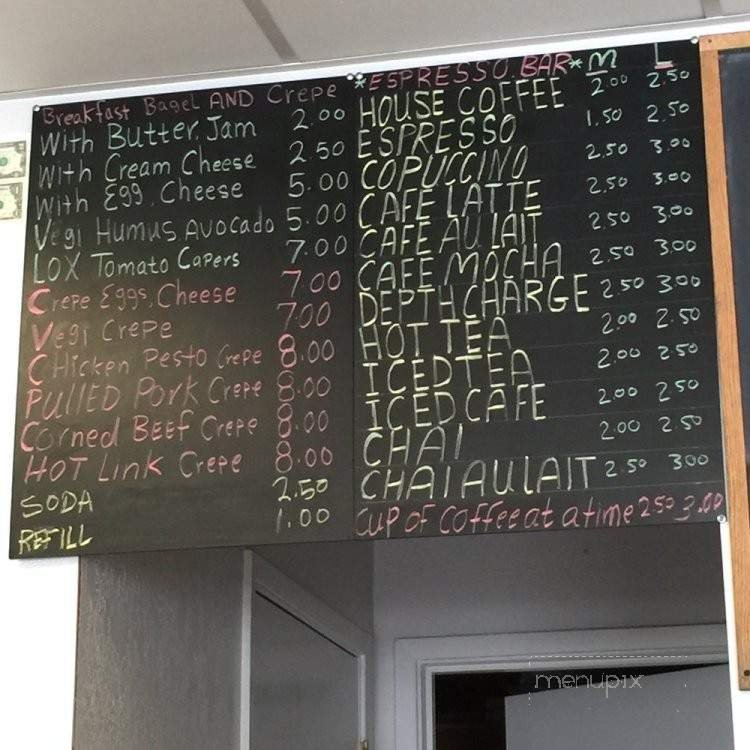 Breakfast Bagel AND Crepe
With Butter, Jam 2.00
With Cream Cheese 2.50
With Egg, Cheese 5.00
Vegi Humus, Avocado 5.00
LOX Tomato Capers 7.00
Crepe Eggs, Cheese 7.00
Vegi Crepe 7.00
Chicken Pesto Crepe 8.00
PULLED Pork Crepe 8.00
Corned BEEF Crepe 8.00
HOT Link Crepe 8.00
SODA 2.50
REFILL 1.00
*ESPRESSO BAR* M L
HOUSE COFFEE 2.00 2.50
ESPRESSO 1.50 2.50
COPUCCINO 2.50 3.00
CAFE LATTE 2.50 3.00
CAFE AU LAIT 2.50 3.00
CAFE MOCHA 2.50 3.00
DEPTH CHARGE 2.50 3.00
HOT TEA 2.00 2.50
ICED TEA 2.00 2.50
ICED CAFE 2.00 2.50
CHAI 2.00 2.50
CHAI AU LAIT 2.50 3.00
CUP OF COFFEE at a time 2.50 3.00
menupix